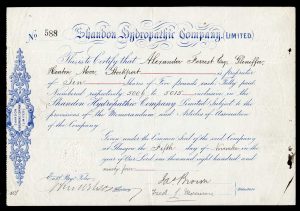 No 588
Shandon Hydropathic Company, (LIMITED)
This is to Certify that Alexander Forrest Esq.
Heaton Moor Stockport is Proprietor
of Ten Shares of Five Pounds each Fully paid
Numbered respectively 5006 to 5015 inclusive in the
Shandon Hydropathic Company Limited subject to the
provisions of the Memorandum and Articles of Association
of the Company.
Given under the Common Seal of the said Company
at Glasgow the Fifth day of in the
year of Our Lord one thousand eight hundred and
Secretary
Jas Brown
Fred
Directors